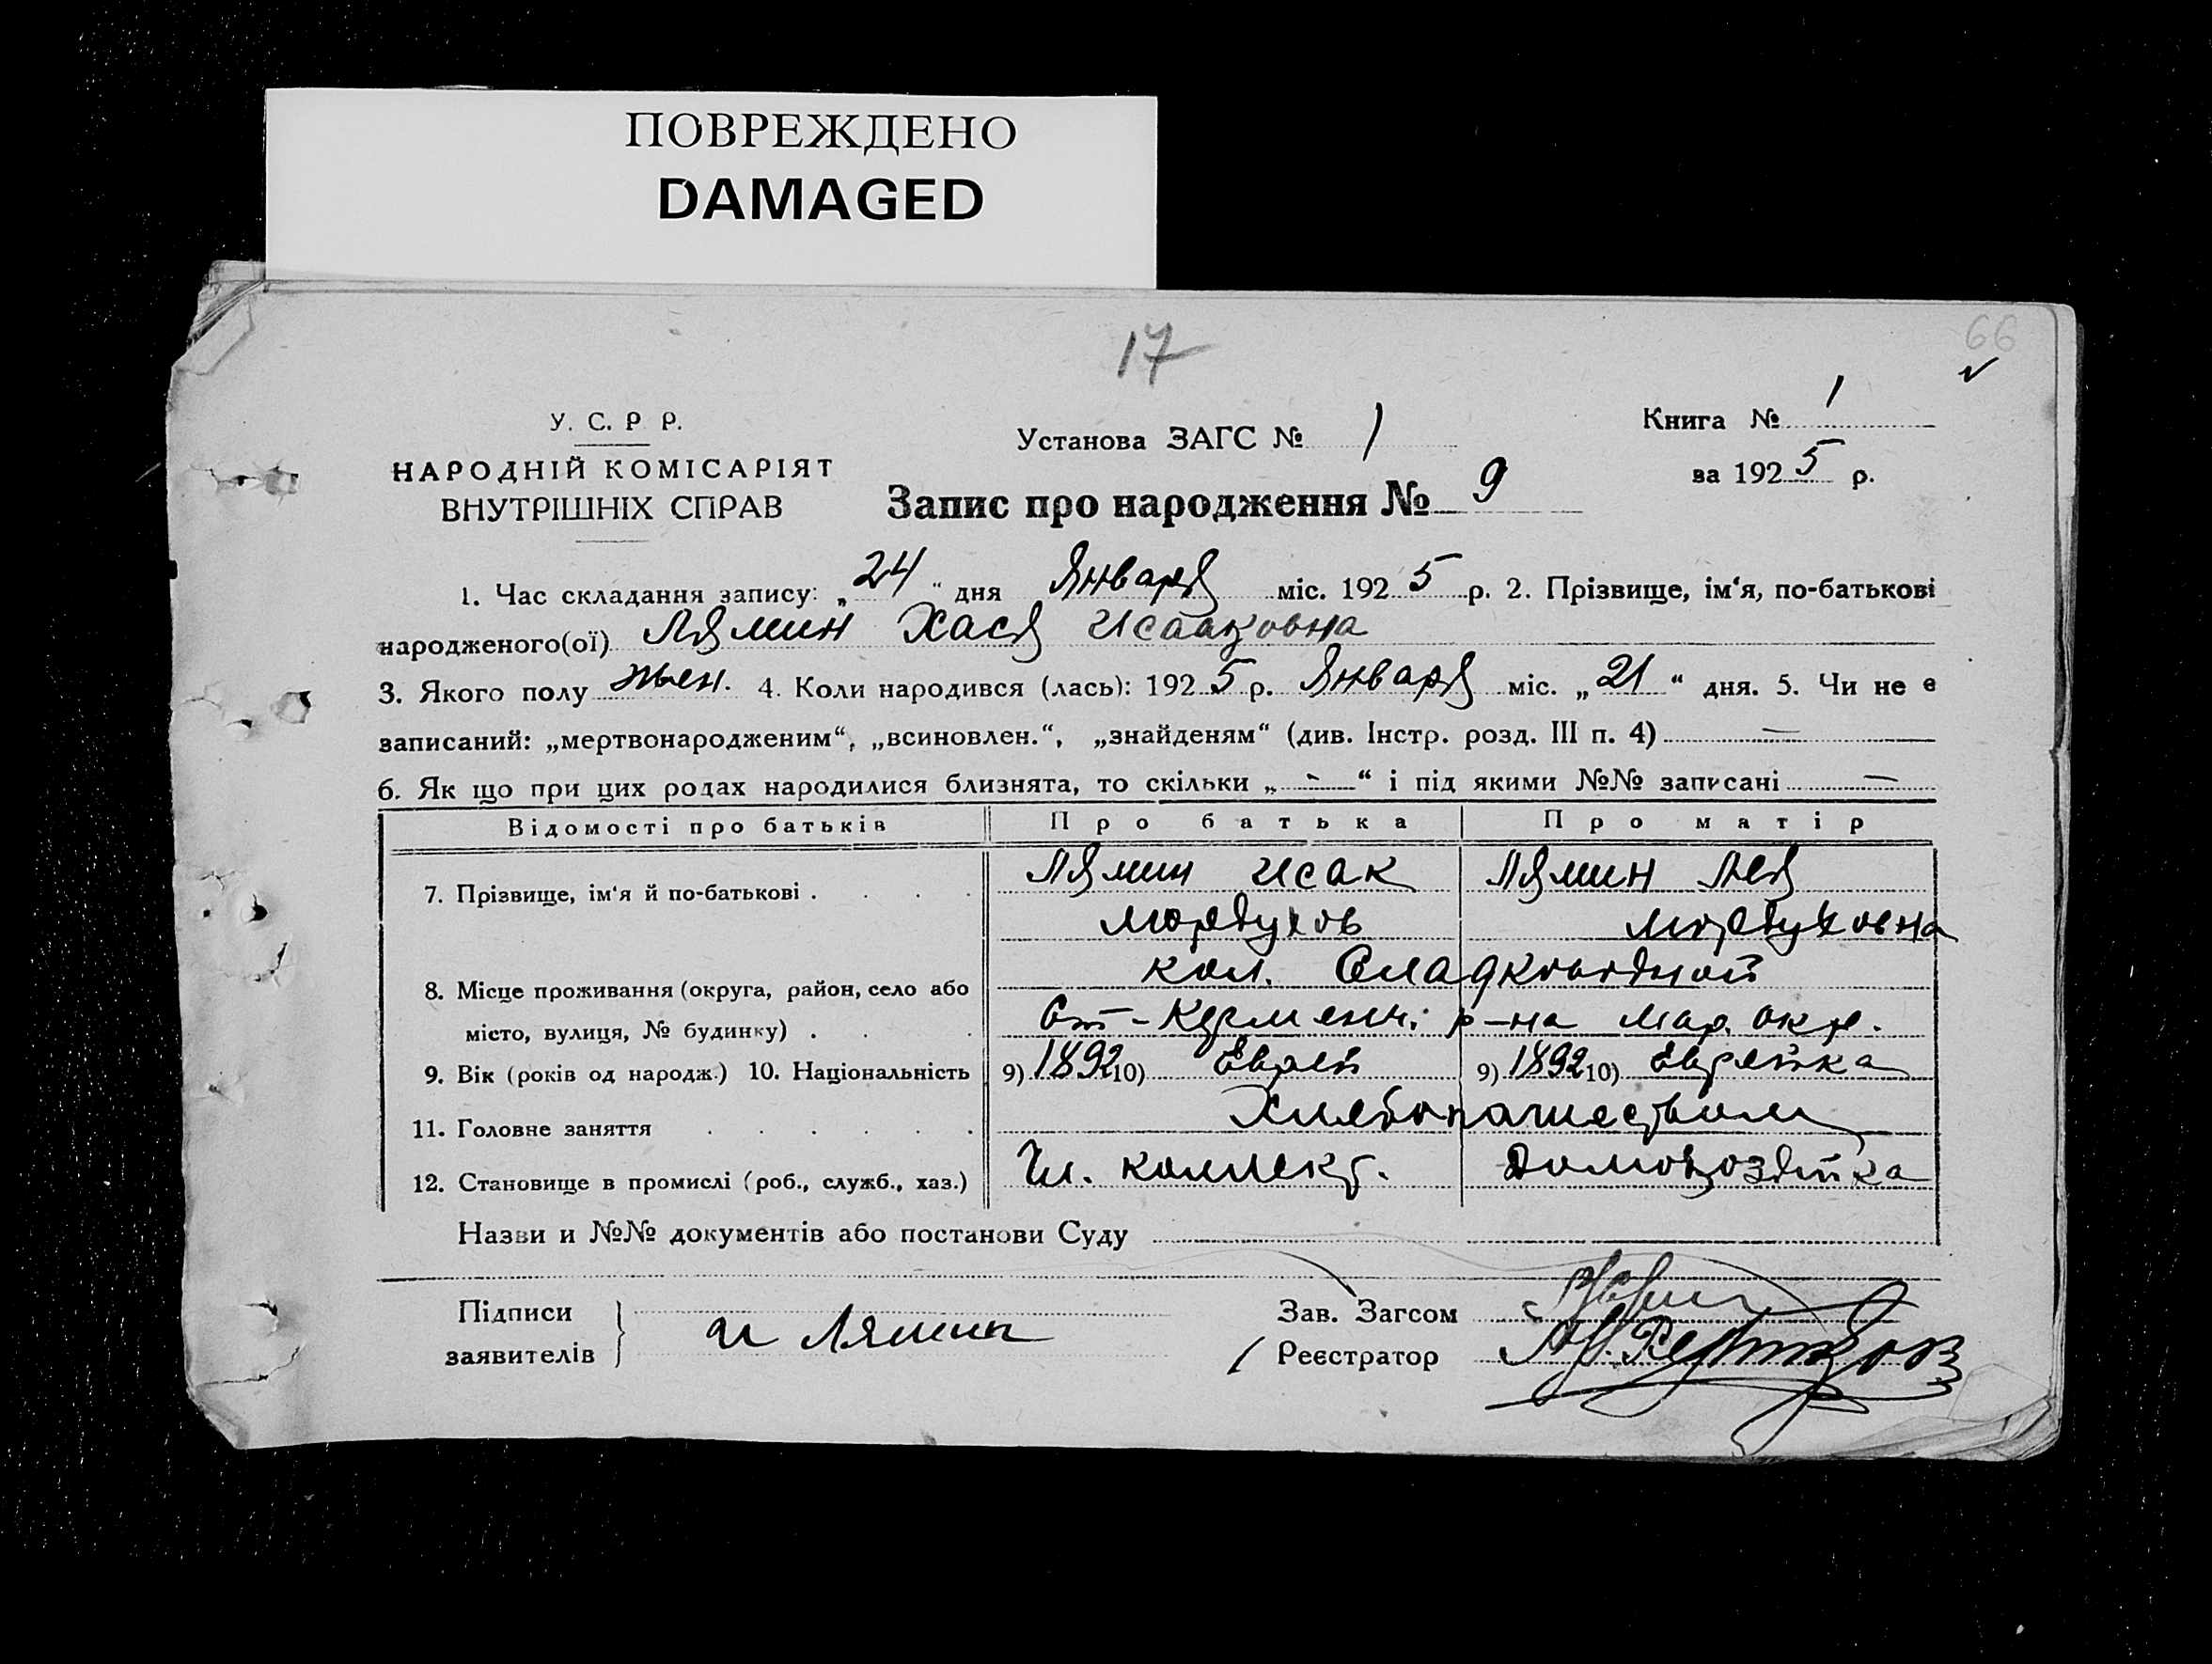 ПОВРЕЖДЕНО
DAMAGED
17
66
У. С. Р Р.
НАРОДНІЙ КОМІСАРІЯТ
ВНУТРІШНІХ СПРАВ
Установа ЗАГС № 1
Книга № 1
за 1925 р.
Запис про народження № 9
1. Час складання запису: „24“ дня Января міс. 1925 р. 2. Прізвище, ім‘я, по-батькові
народженого(ої) Лямин Хася Исааковна
3. Якого полу жен. 4. Коли народився (лась): 1925 р. Января міс. „21“ дня. 5. Чи не є
записаний: „мертвонародженим“, „всиновлен.“, „знайденям“ (див. Інстр. розд. III п. 4) —
6. Як що при цих родах народилися близнята, то скільки „-“ і під якими №№ записані —
Відомості про батьків Про батька Про матір
7. Прізвище, ім‘я й по-батькові . . . . Лямин Исак Лямин Лея
Мордухов Мордуховна
кол. Сладководной
8. Місце проживання (округа, район, село або
місто, вулиця, № будинку) . . Ст-Керменч. р-на Мар. окр.
9. Вік (років од народж.) 10. Національність 9) 1892 10) Еврей 9) 1892 10) Еврейка
11. Головне заняття . . . . . . Хлебопашеством
12. Становище в промислі (роб., служб., хаз.) Чл. коллект. Домохозяйка
Назви и №№ документів або постанови Суду
Підписи
заявителів
И Лямин
Зав. Загсом
Реєстратор